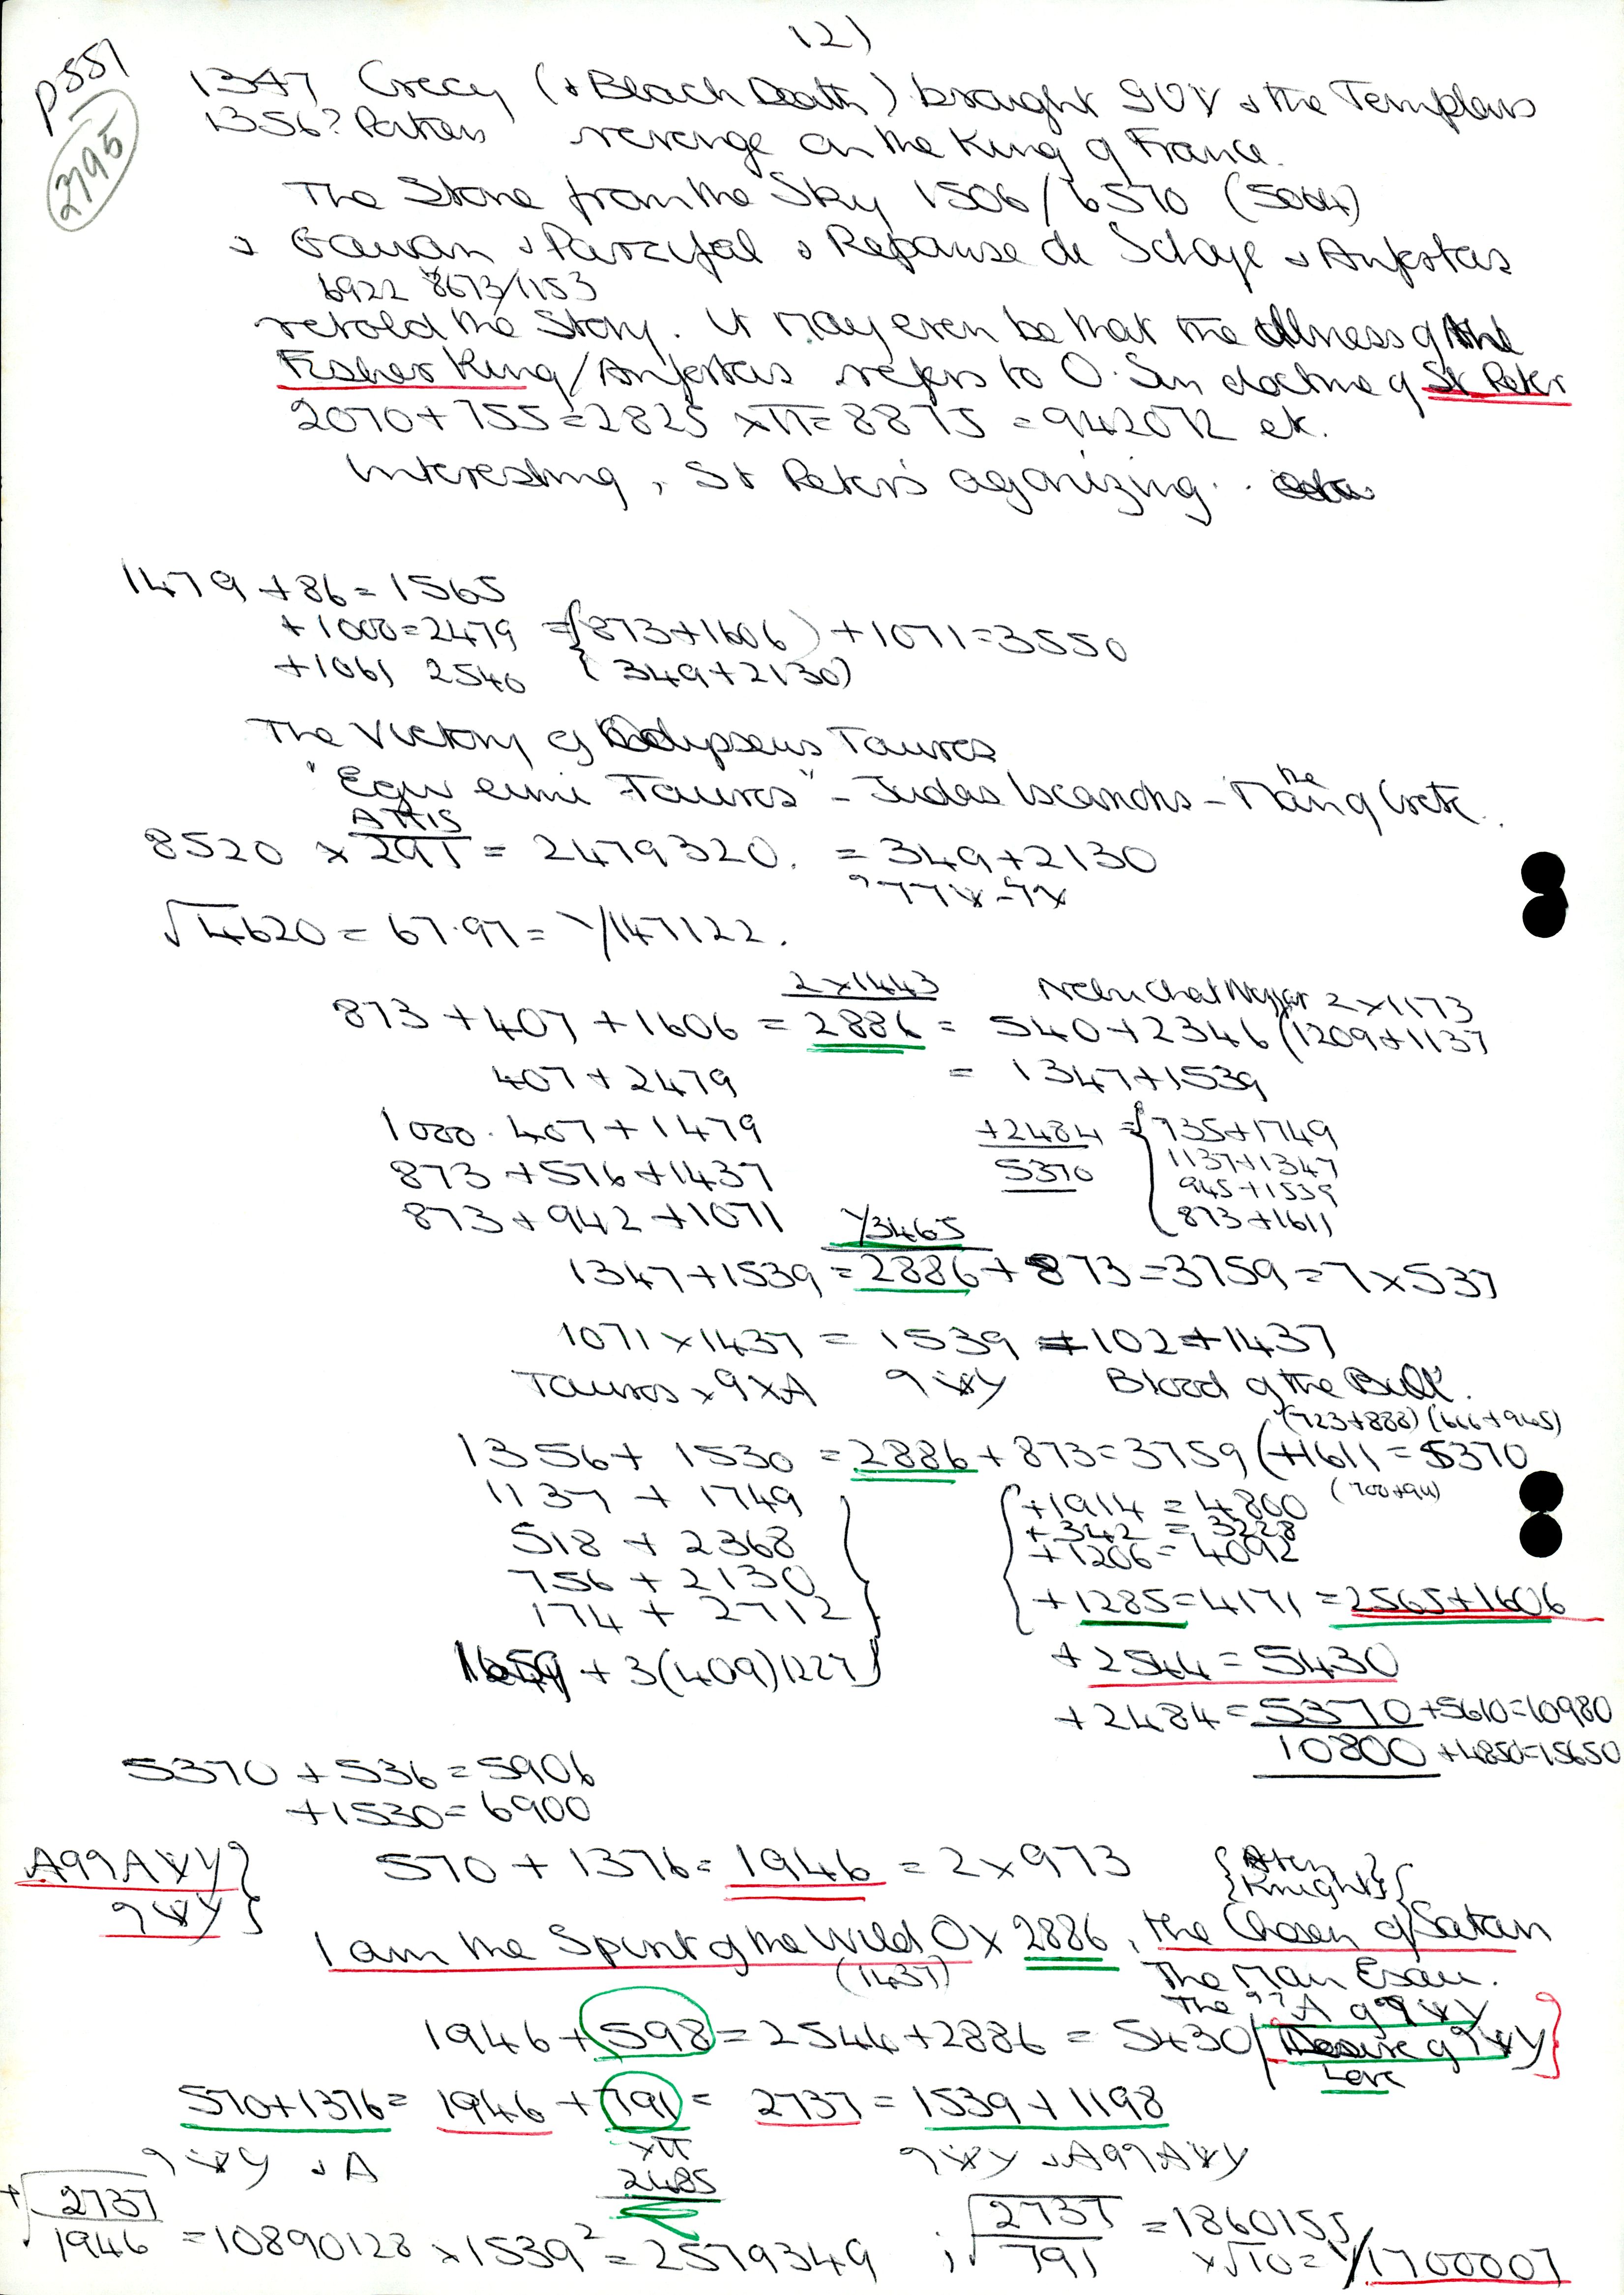 12)
p551
2795
1347 Crecy (& Black Death) brought 9UY & the Templars
1356? revenge on the King of France.
The Stone from the Sky 1506/6570 (5064)
& Gawan & Parzifal & Repanse de & Anfortas
6922 8673/1153
retold the Story. It may even be that the illness of the
Fisher King/Anfortas refers to O. Sin doctrine of St Peter
2070+755=2825 ×π=8875 =942072 etc.
Interesting, St Peter's agonizing..
1479 +86=1565
+1000=2479 = (873+1606) +1071=3550
+1061 2540 (349+2130)
The Victory of Tauros
"Egw eimi Tauros" - Judas Iscariotis - the Man of Crete.
ATTIS
8520 × 291 = 2479320. = 349+2130
√4620 = 67.97= Y/147122.
2×1443 2×1173
873 +407 +1606 = 2886 = 540+2346 (1209+1137
407+2479 = 1347+1539
1000.407+1479 +2484 = {735+1749
873+576+1437 5370 1137+1347
945+1539
873+942+1071 873+1611
Y3465
1347+1539=2886+873=3759=7×537
1071×1437 = 1539 +102+1437
Tauros × 9×A Blood of the Bull.
(723+888) (666+945)
1356+ 1530 =2886+873=3759(+1611=5370
1137 + 1749 +1914 = 4800 (700+911)
518 + 2368 +342 = 3228
756+2130 +1206=4092
174 + 2712 +1285=4171=2565+1606
1659 + 3(409)1227 +2544=5430
+2484=5370+5610=10980
10800+4850=15650
5370 +536=5906
+1530=6900
570+1376=1946=2×973 {Aten
Knights}
I am the Spirit of the Wild Ox 2886, the Chosen of Satan
(1437) The Man Esau.
1946+598=2544+2886=5430
Love
570+1376= 1946 +791= 2737 = 1539+1198
×π
2485
√2737/1946 =10890128 ×1539²=2579349 ; √2737/791 =1860155
×√10=Y/1700007